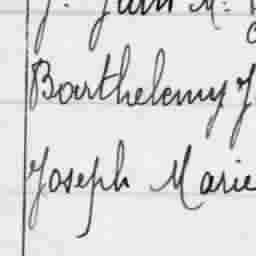 J. Jean M.
Barthelemy J
Joseph Marie